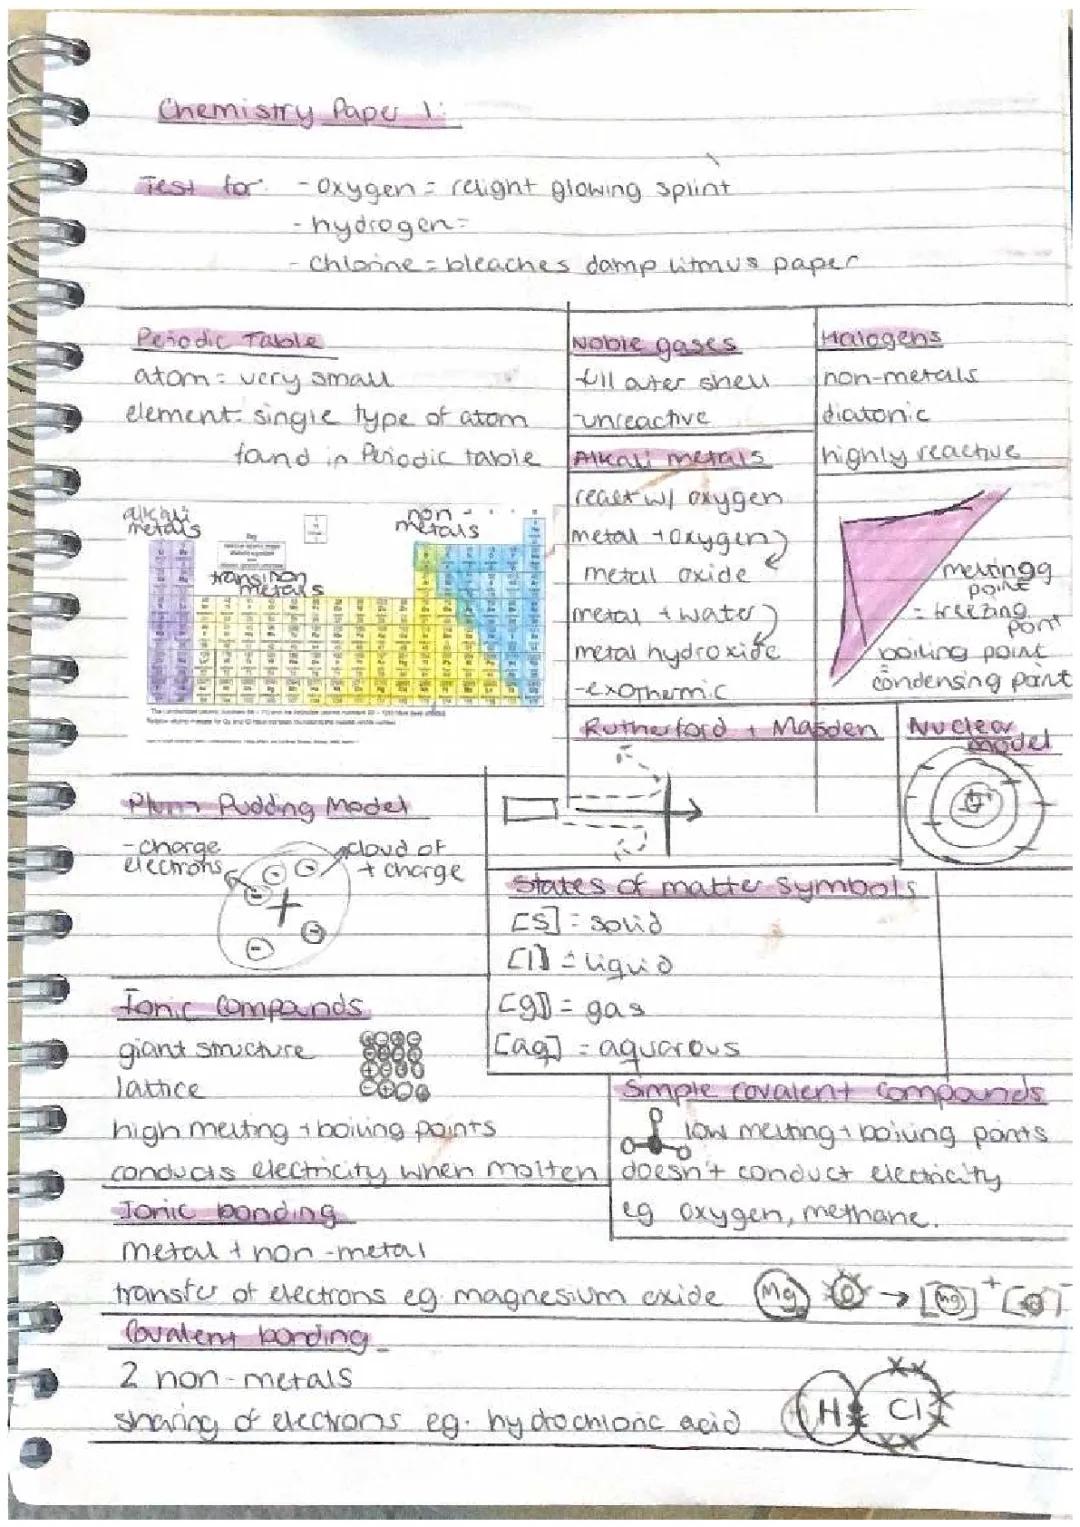 Chemistry Paper 1:
Test for: - Oxygen = relight glowing splint
- hydrogen =
- Chlorine = bleaches damp litmus paper
Periodic Table
atom = very small
element = single type of atom
found in Periodic table
alkali
metals
non -
metals
transition
metals
Noble gases
full outer shell
-unreactive
Alkali metals
react w/ oxygen
metal + oxygen
metal oxide
metal + water
metal hydroxide
-exothermic
Halogens
non-metals
diatonic
highly reactive
meltingg
point
= freezing
point
boiling point
=
condensing point
Rutherford + Masden
Nuclear
model
+
Plum Pudding Model
- charge
electrons
cloud of
+ charge
+
States of matter symbols
[s] = solid
[l] = liquid
[g] = gas
[aq] = aquarous
Ionic Compounds
giant structure
lattice
high melting + boiling points
conducts electricity when molten
Simple covalent compounds
low melting + boiling points
doesn't conduct electricity
eg oxygen, methane.
Ionic bonding
metal + non-metal
transfer of electrons eg. magnesium oxide Mg O → [Mg]+ [O]-
Covalent bonding
2 non-metals
sharing of electrons eg. hydrochloric acid H Cl